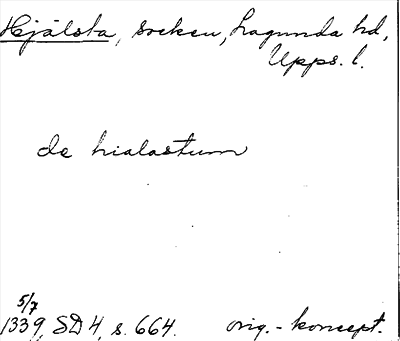 Hjälsta, socken, Lagunda hd,
Upps. l.
de hialastum
5/7
1339, SD 4, s. 664. orig.-koncept.